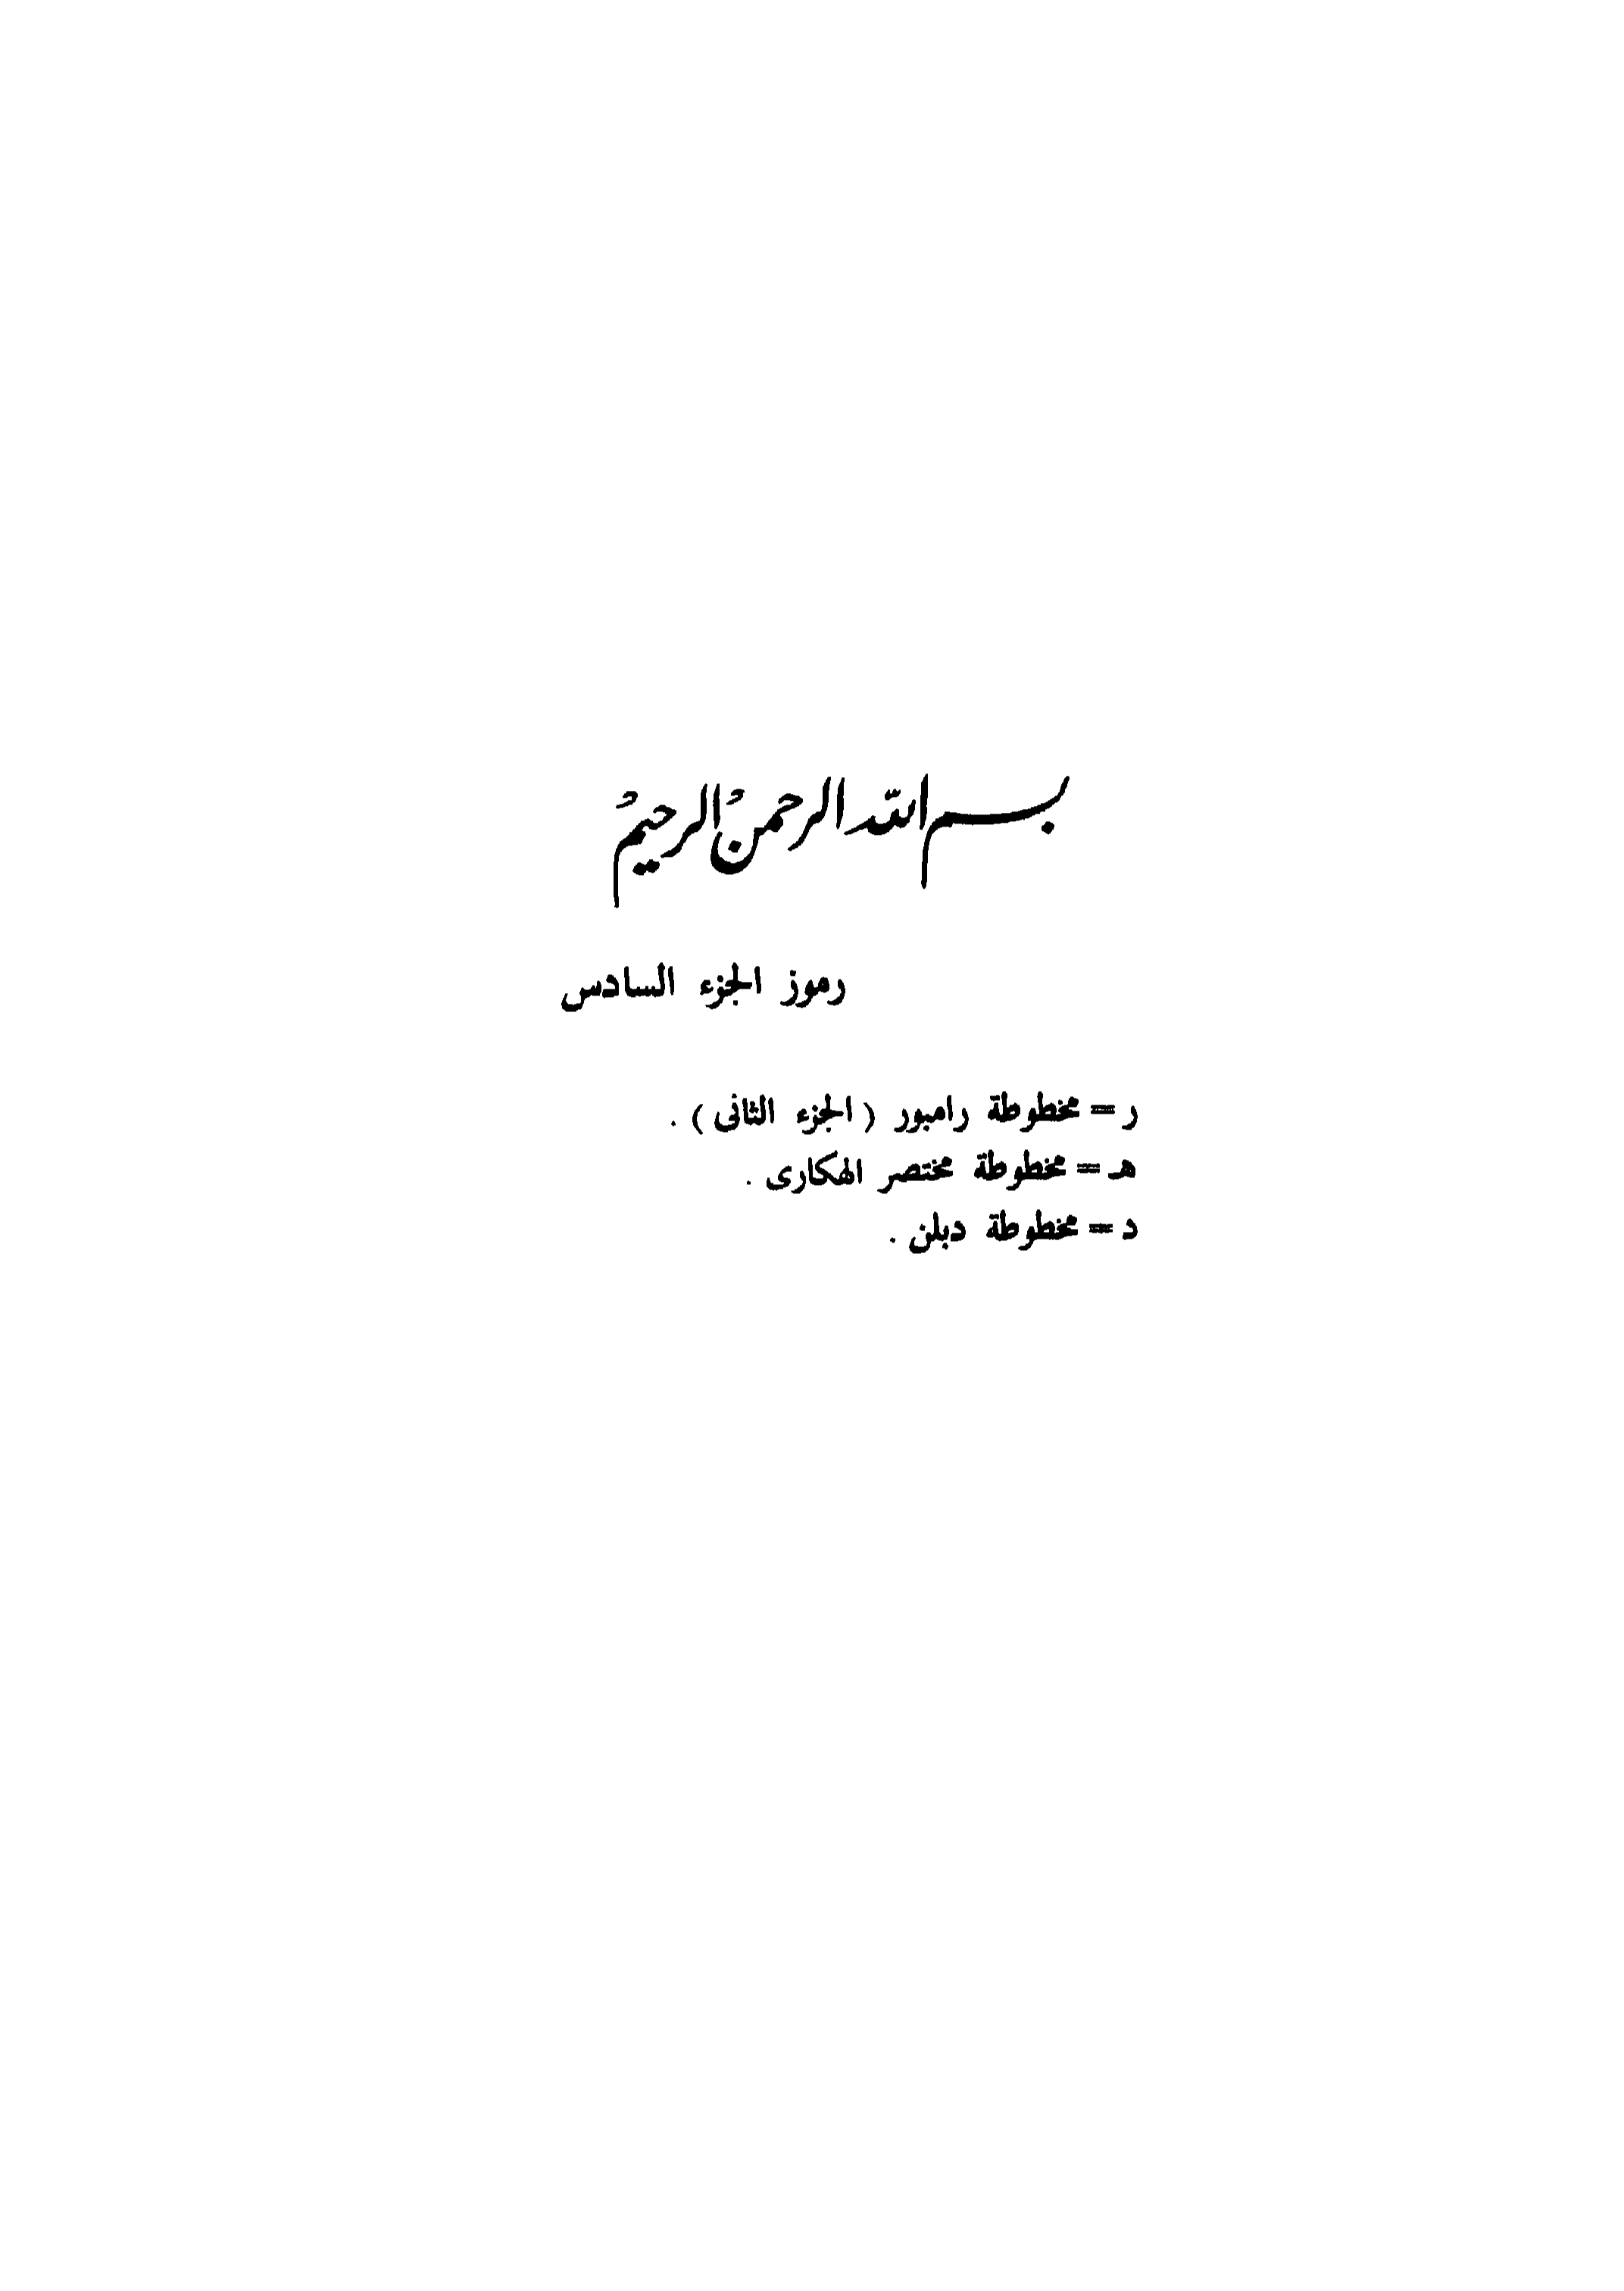 بسم الله الرحمن الرحيم
رموز الجزء السادس
ر = مخطوطة رامبور ( الجزء الثانى ) .
هـ = مخطوطة مختصر الهكارى .
د = مخطوطة دبلن .